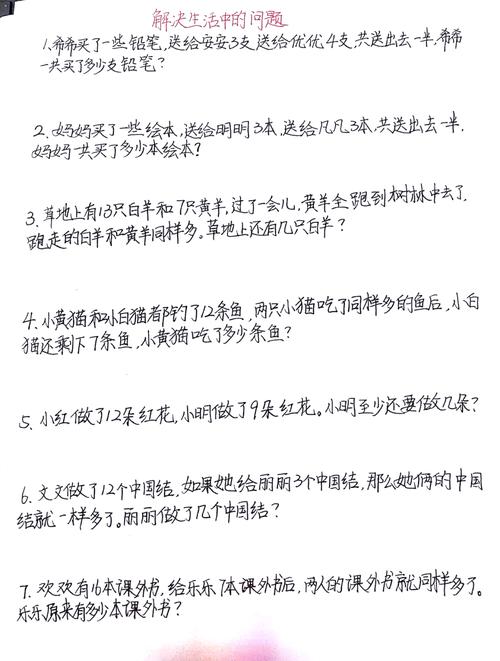 解决生活中的问题
1.希希买了一些铅笔,送给安安3支,送给优优4支,共送出去一半,希希
一共买了多少支铅笔?
2.妈妈买了一些绘本,送给明明3本,送给凡凡3本,共送出去一半,
妈妈一共买了多少本绘本?
3.草地上有13只白羊和7只黄羊,过了一会儿,黄羊全跑到树林中去了,
跑走的白羊和黄羊同样多。草地上还有几只白羊?
4.小黄猫和小白猫都钓了12条鱼,两只小猫吃了同样多的鱼后,小白
猫还剩下7条鱼,小黄猫吃了多少条鱼?
5.小红做了12朵红花,小明做了9朵红花。小明至少还要做几朵?
6.文文做了12个中国结,如果她给丽丽3个中国结,那么她俩的中国
结就一样多了。丽丽做了几个中国结?
7.欢欢有16本课外书,给乐乐7本课外书后,两人的课外书就同样多了。
乐乐原来有多少本课外书?